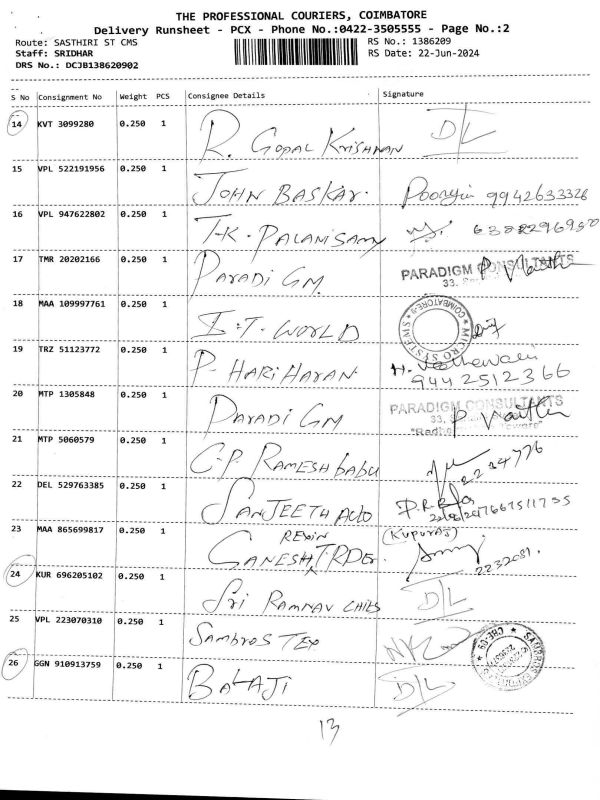 THE PROFESSIONAL COURIERS, COIMBATORE
Delivery Runsheet - PCX - Phone No.:0422-3505555 - Page No.:2
Route: SASTHIRI ST CMS
Staff: SRIDHAR
DRS No.: DCJB138620902
RS No.: 1386209
RS Date: 22-Jun-2024
S No Consignment No Weight PCS Consignee Details Signature
14 KVT 3099280 0.250 1 R. GOPAL KRISHNAN D/L
15 VPL 522191956 0.250 1 JOHN BASKAR. 9942633326
16 VPL 947622802 0.250 1 T.K. PALANISAMY
17 TMR 20202166 0.250 1 PARADIGM. PARADIGM CONSULTANTS
18 MAA 109997761 0.250 1 I.T. WORLD COIMBATORE-9 MICRO SYSTEMS
19 TRZ 51123772 0.250 1 P. HARIHARAN
9442512366
20 MTP 1305848 0.250 1 PARADIGM PARADIGM CONSULTANTS
21 MTP 5060579 0.250 1 C.P. RAMESH babu 2234776
22 DEL 529763385 0.250 1 SANJEETH AUTO
23 MAA 865699817 0.250 1 GANESH REXIN TRDER
24 KUR 696205102 0.250 1 Sri RAMNAV CHITS D/L
25 VPL 223070310 0.250 1 Sambros TEX
26 GGN 910913759 0.250 1 BALAJI D/L
13